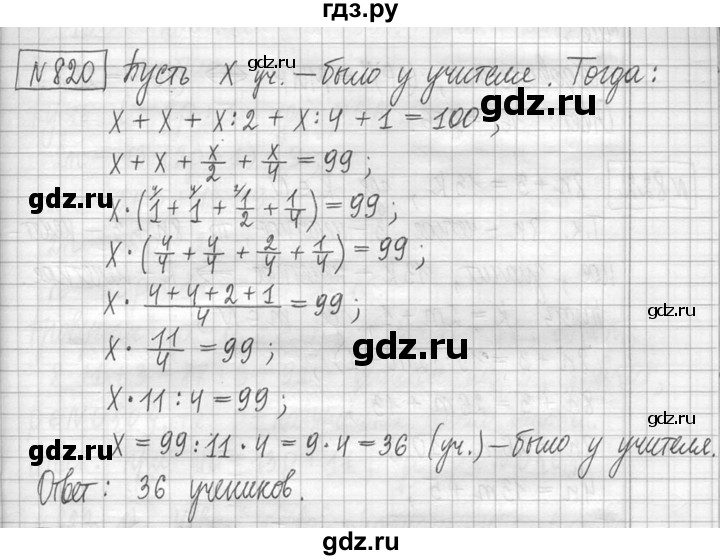 гдз.ру
№820 Пусть x уч. – было у учителя. Тогда:
gdz.ru
x + x + x:2 + x:4 + 1 = 100;
x + x + x/2 + x/4 = 99;
gdz.ru
x·(1 + 1 + 1/2 + 1/4) = 99;
x·(4/4 + 4/4 + 2/4 + 1/4) = 99;
x· (4+4+2+1)/4 = 99;
gdz.ru
x· 11/4 = 99;
gdz.ru
x·11:4 = 99;
x = 99:11·4 = 9·4 = 36 (уч.) – было у учителя.
gdz.ru
gdz.ru
Ответ: 36 учеников.
gdz.ru